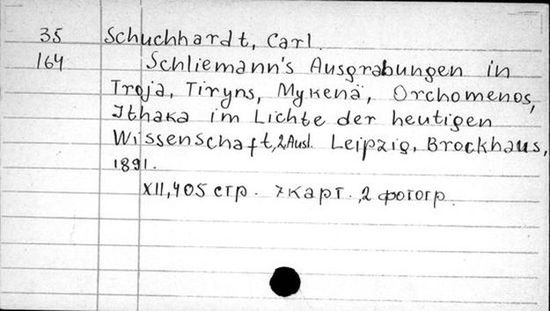 35 Schuchhardt, Carl.
164 Schliemann's Ausgrabungen in
Troja, Tiryns, Mykenä, Orchomenos,
Ithaka im Lichte der heutigen
Wissenschaft, 2 Ausl. Leipzig, Brockhaus,
1891.
XII, 405 стр. 7 карт. , 2 фотогр.